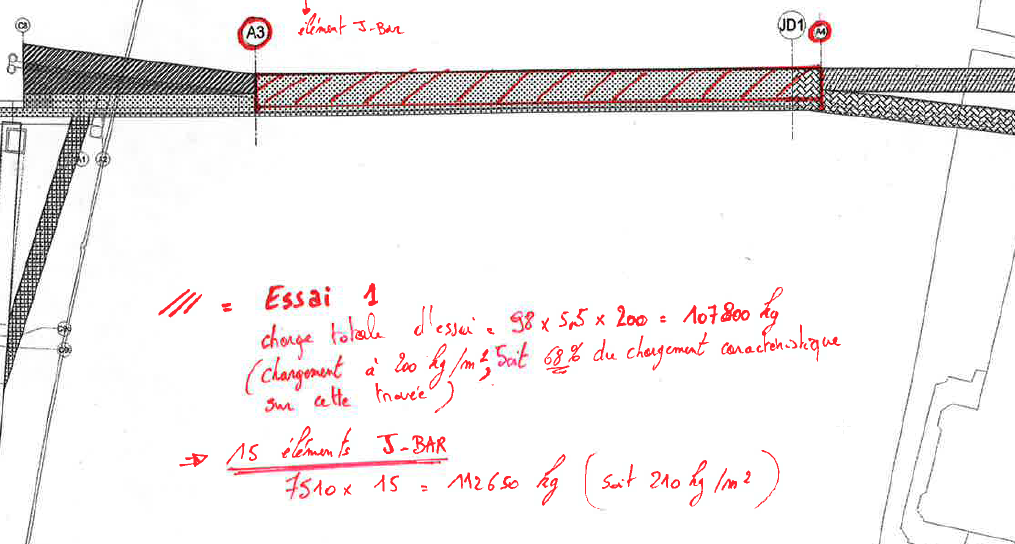 C8
A3
élément J-BAR
JD1
A4
A1 A2
/// = Essai 1
charge totale d'essai = 98 x 5,5 x 200 = 107800 kg
(chargement à 200 kg/m², Soit 68% du chargement caractéristique
sur cette travée)
→ 15 éléments J-BAR
7510 x 15 = 112650 kg (soit 210 kg/m²)